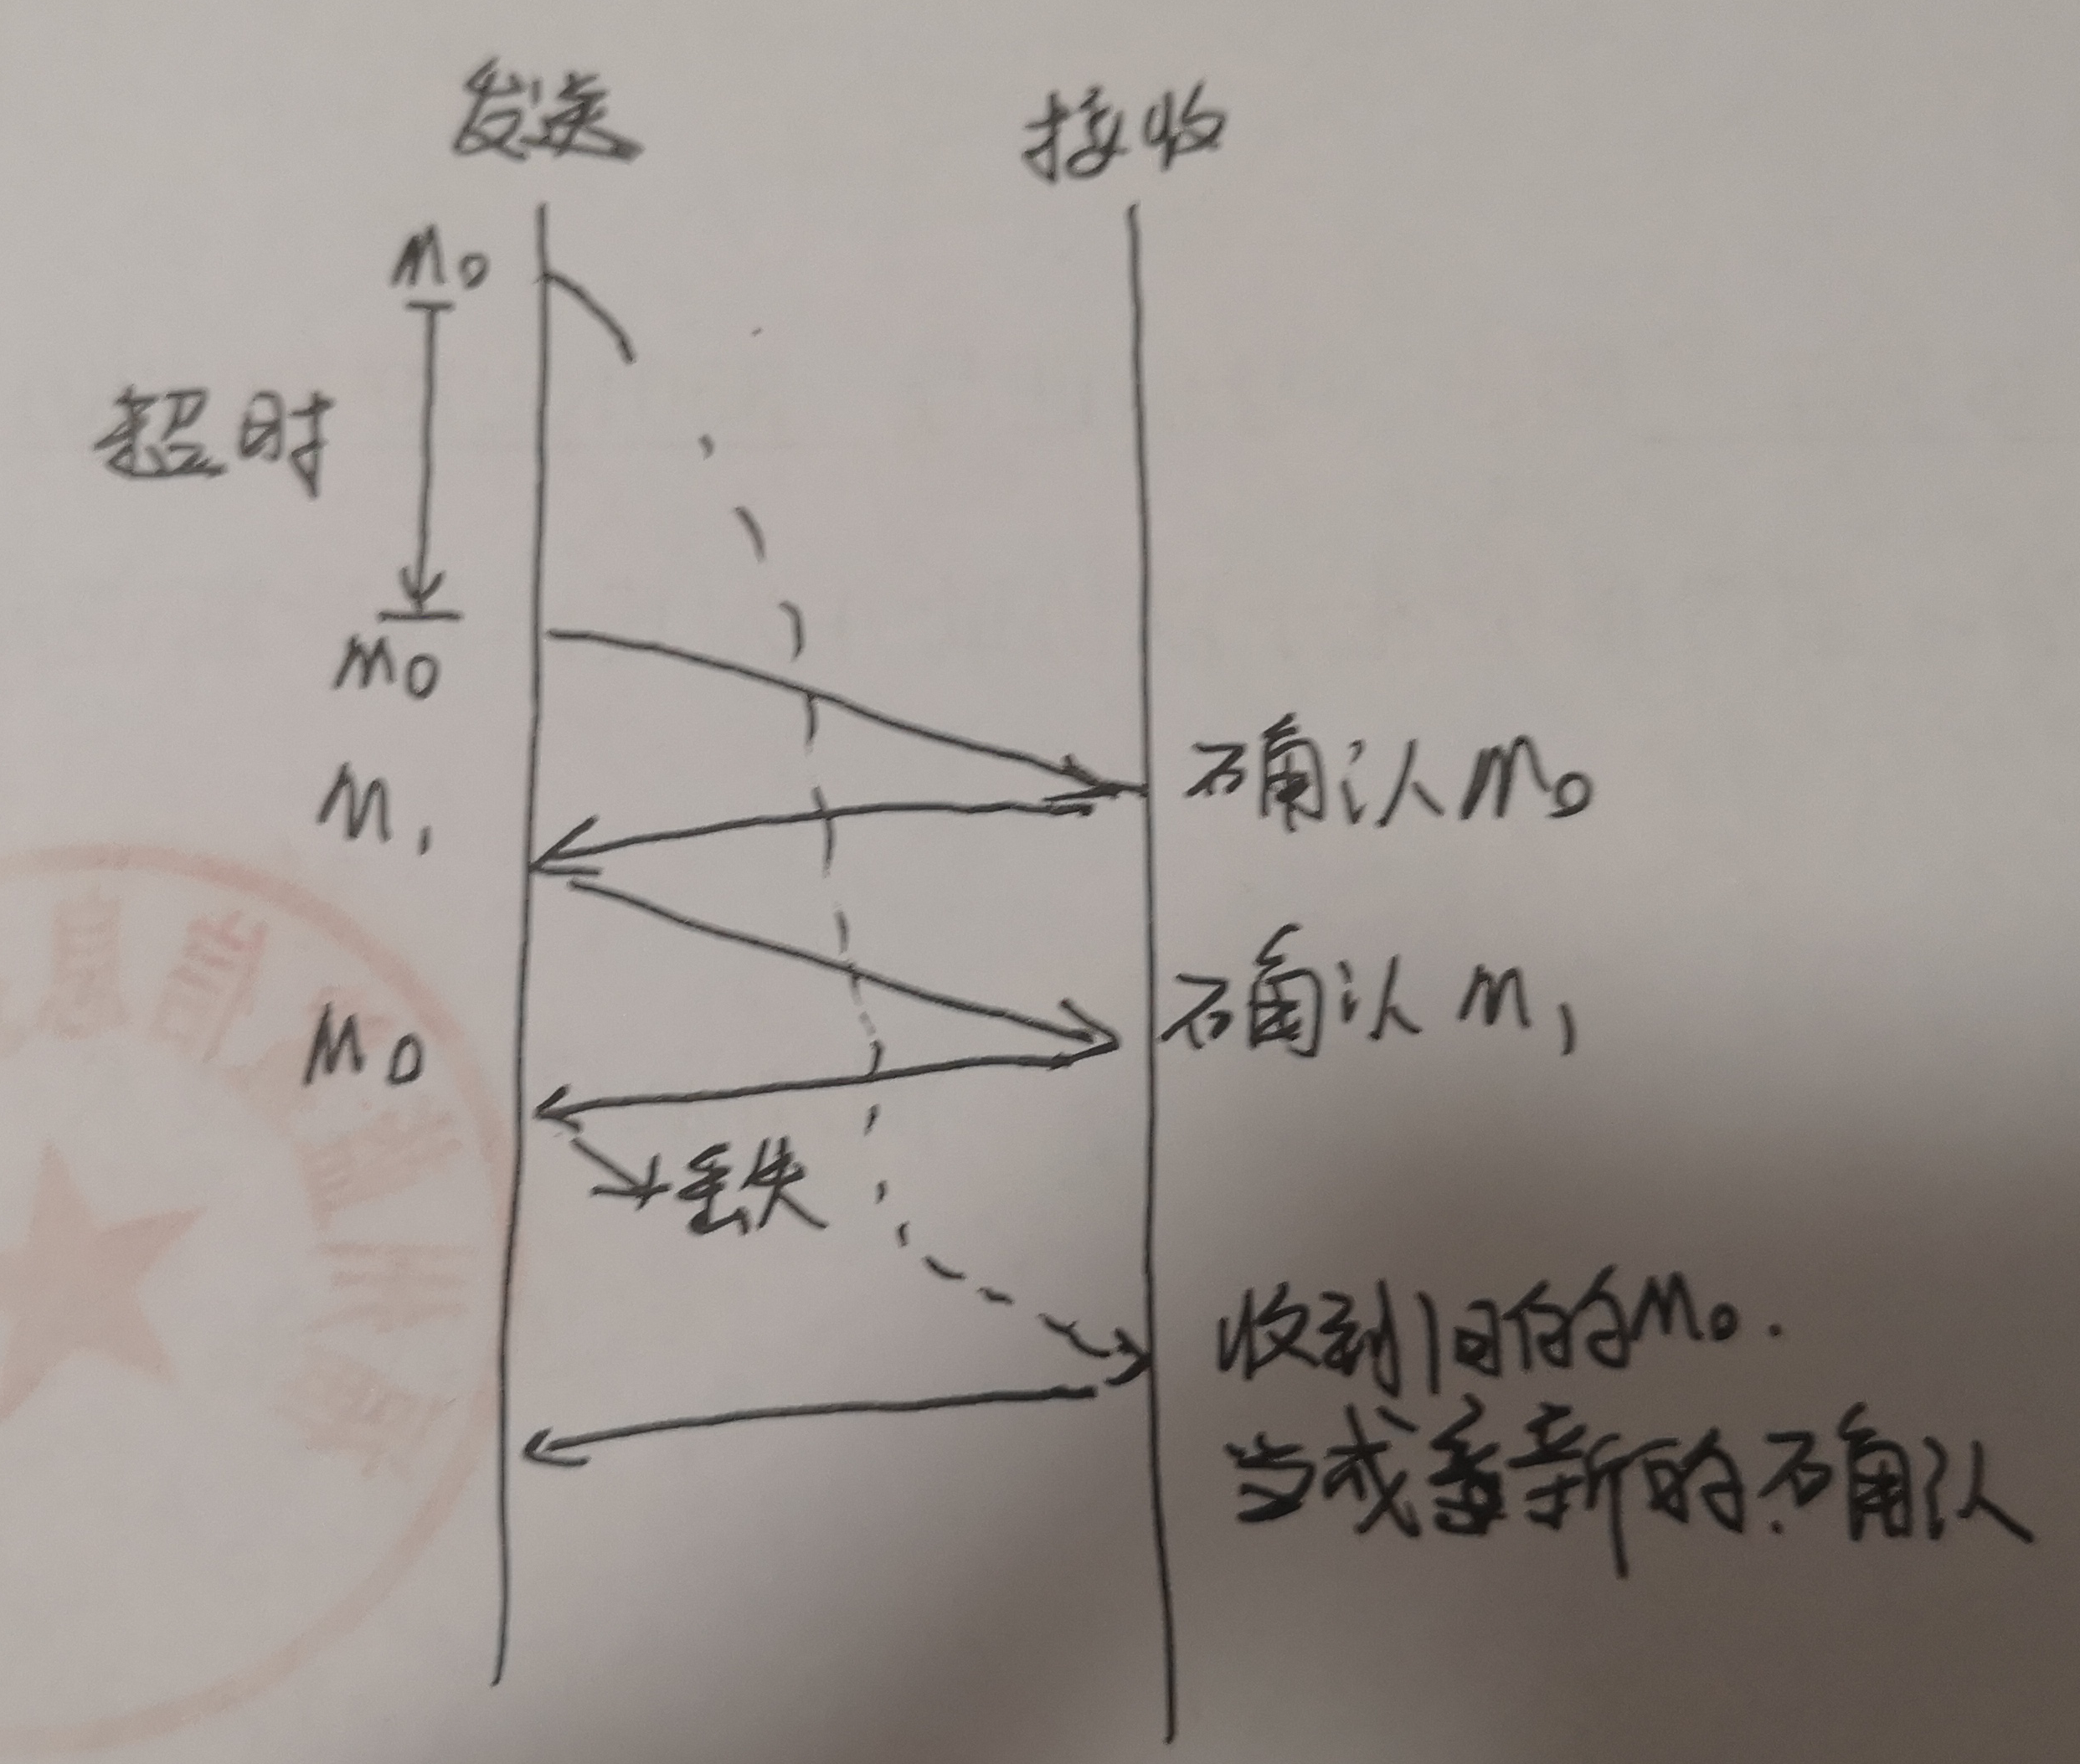 发送
接收
M0
超时
M0
M1
确认M0
确认M1
M0
丢失
收到旧的M0.
当成新的.确认